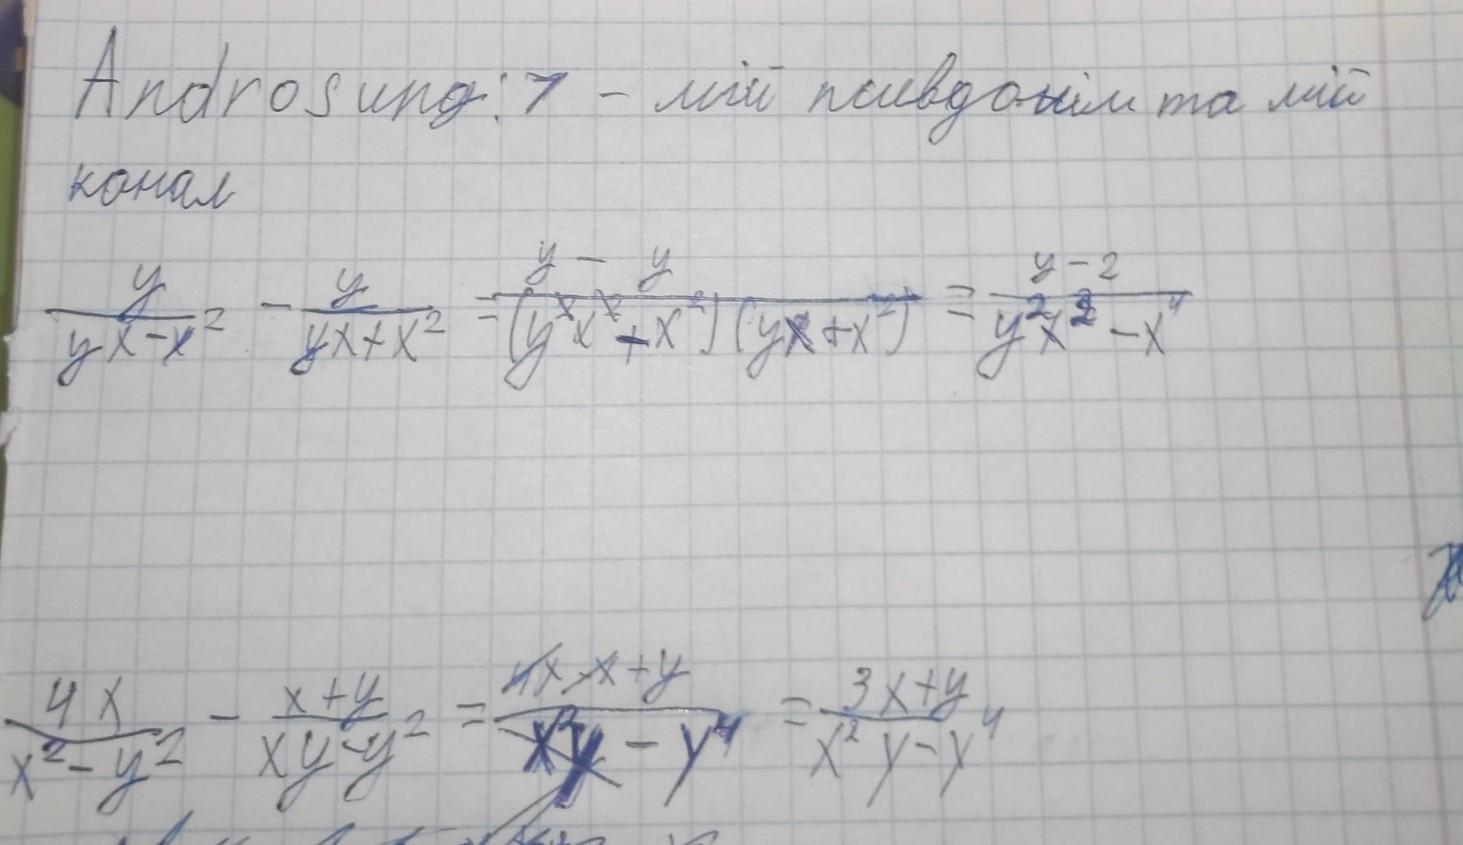 Androsung:7 - мій псевдонім та мій
канал
y/(yx-x²) - y/(yx+x²) = (y - y)/((y²x²+x²)(yx+x²)) = (y-2)/(y²x²-x⁴)
4x/(x²-y²) - (x+y)/(xy-y²) = (4x-x+y)/(x²y-y⁴) = (3x+y)/(x²y-y⁴)